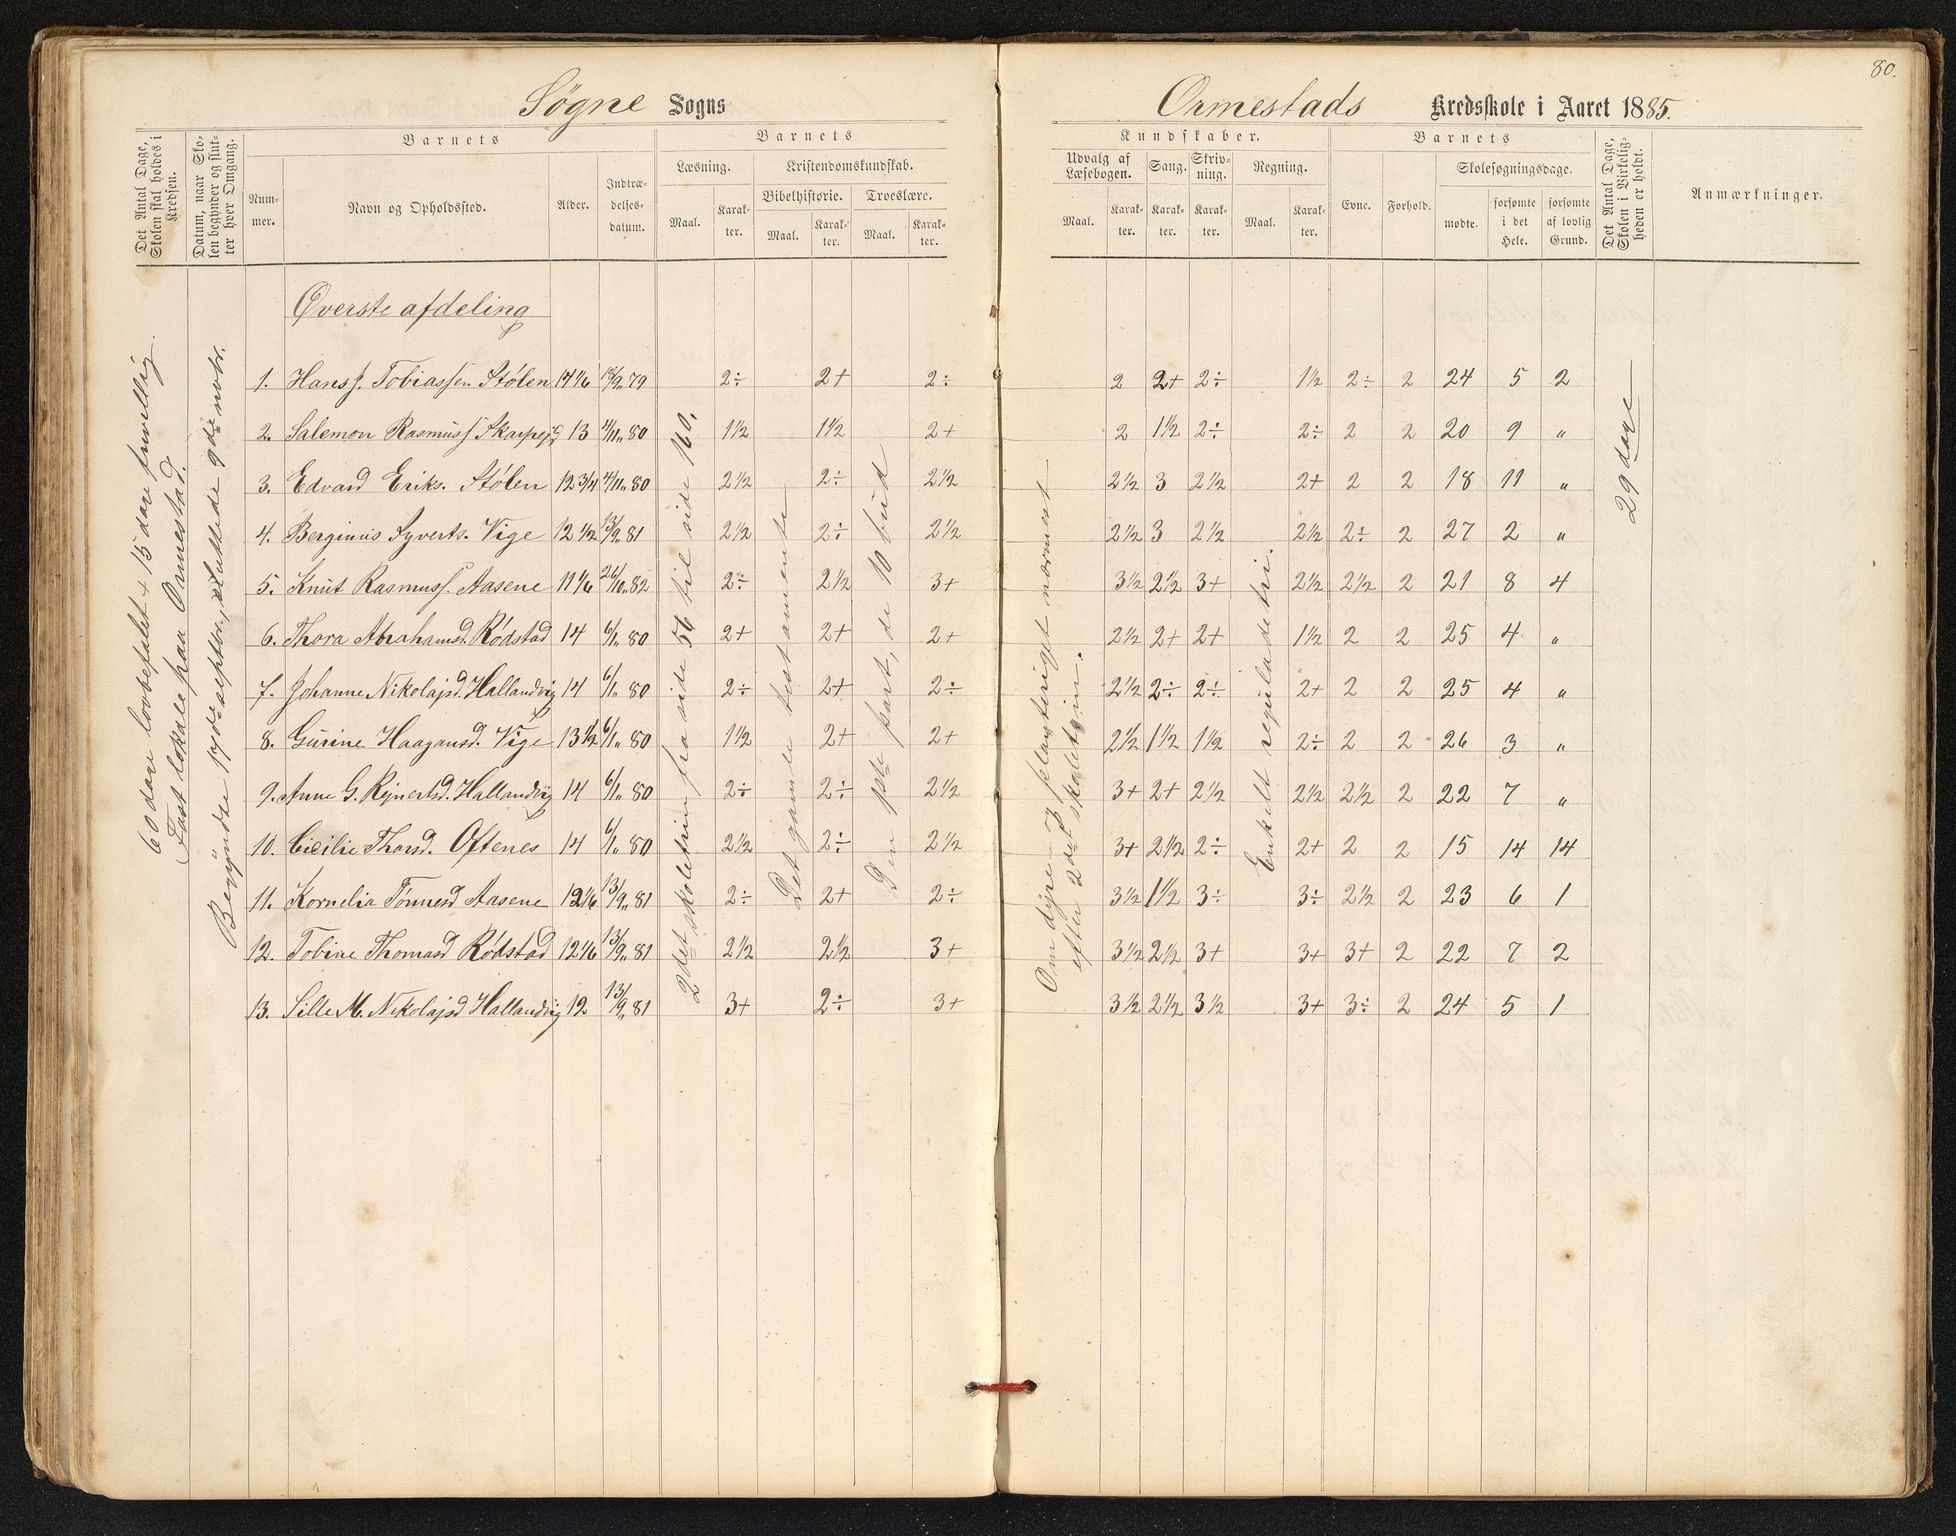 80.
Søgne Sogns
Ormestads Kredsskole i Aaret 1885.
Det Antal Dage, Skolen skal holdes i Kredsen.
Datum, naar Skolen begynder og slutter hver Omgang.
Barnets
Nummer.
Navn og Opholdssted.
Alder.
Indtrædelsesdatum.
Barnets
Læsning.
Maal.
Karakter.
Kristendomskundskab.
Bibelhistorie.
Maal.
Karakter.
Troeslære.
Maal.
Karakter.
Kundskaber.
Udvalg af Læsebogen.
Maal.
Karakter.
Sang.
Karakter.
Skrivning.
Karakter.
Regning.
Maal.
Karakter.
Barnets
Evne.
Forhold.
Skolesøgningsdage.
mødte.
forsømte i det Hele.
forsømte af lovlig Grund.
Det Antal Dage, Skolen i Virkeligheden er holdt.
Anmærkninger.
Øverste afdeling
60 dage lovbefalet + 15 dage frivillig.
Fast lokale paa Ormestad.
Begyndte 17de septbr., sluttede 9de novbr.
2det skoletrin fra side 56 til side 160.
Det gamle testamente
Den 1ste part, de 10 bud
Om dyre- og planteriget nærmest
efter 2det skoletrin.
Enkelt reguladetri.
29 dage
1. Hans J. Tobiassen Stølen 14 1/6 18/9 79 2÷ 2+ 2÷ 2 2+ 2÷ 1½ 2÷ 2 24 5 2
2. Salemon Rasmuss. Skarpeid 13 4/11 80 1½ 1½ 2+ 2 1½ 2÷ 2÷ 2 2 20 9 "
3. Edvard Eriks. Stølen 12 3/4 4/11 80 2½ 2÷ 2½ 2½ 3 2½ 2+ 2 2 18 11 "
4. Berginus Syverts. Vige 12 ½ 13/9 81 2½ 2÷ 2½ 2½ 3 2½ 2½ 2÷ 2 27 2 "
5. Knut Rasmuss. Aasene 11 1/6 26/10 82 2÷ 2½ 3+ 3½ 2½ 3+ 2½ 2½ 2 21 8 4
6. Thora Abrahamsd. Rødstad 14 6/1 80 2+ 2+ 2+ 2½ 2+ 2+ 1½ 2 2 25 4 "
7. Johanne Nikolajsd. Hallandvig 14 6/1 80 2÷ 2+ 2÷ 2½ 2÷ 2÷ 2+ 2 2 25 4 "
8. Gurine Haagansd. Vige 13 ½ 6/1 80 1½ 2+ 2+ 2½ 1½ 1½ 2÷ 2 2 26 3 "
9. Anne G. Rejnertsd. Hallandvig 14 6/1 80 2÷ 2÷ 2½ 3+ 2+ 2½ 2½ 2½ 2 22 7 "
10. Cicilie Thorsd. Oftenes 14 6/1 80 2½ 2÷ 2½ 3+ 2½ 2÷ 2+ 2 2 15 14 14
11. Kornelia Tønnesd Aasene 12 1/6 13/9 81 2÷ 2+ 2÷ 3½ 1½ 3÷ 3÷ 2½ 2 23 6 1
12. Tobine Thomasd Rødstad 12 1/6 13/9 81 2½ 2½ 3+ 3½ 2½ 3+ 3+ 3+ 2 22 7 2
13. Sille M. Nikolajsd Hallandvig 12 13/9 81 3+ 2÷ 3+ 3½ 2½ 3½ 3+ 3÷ 2 24 5 1